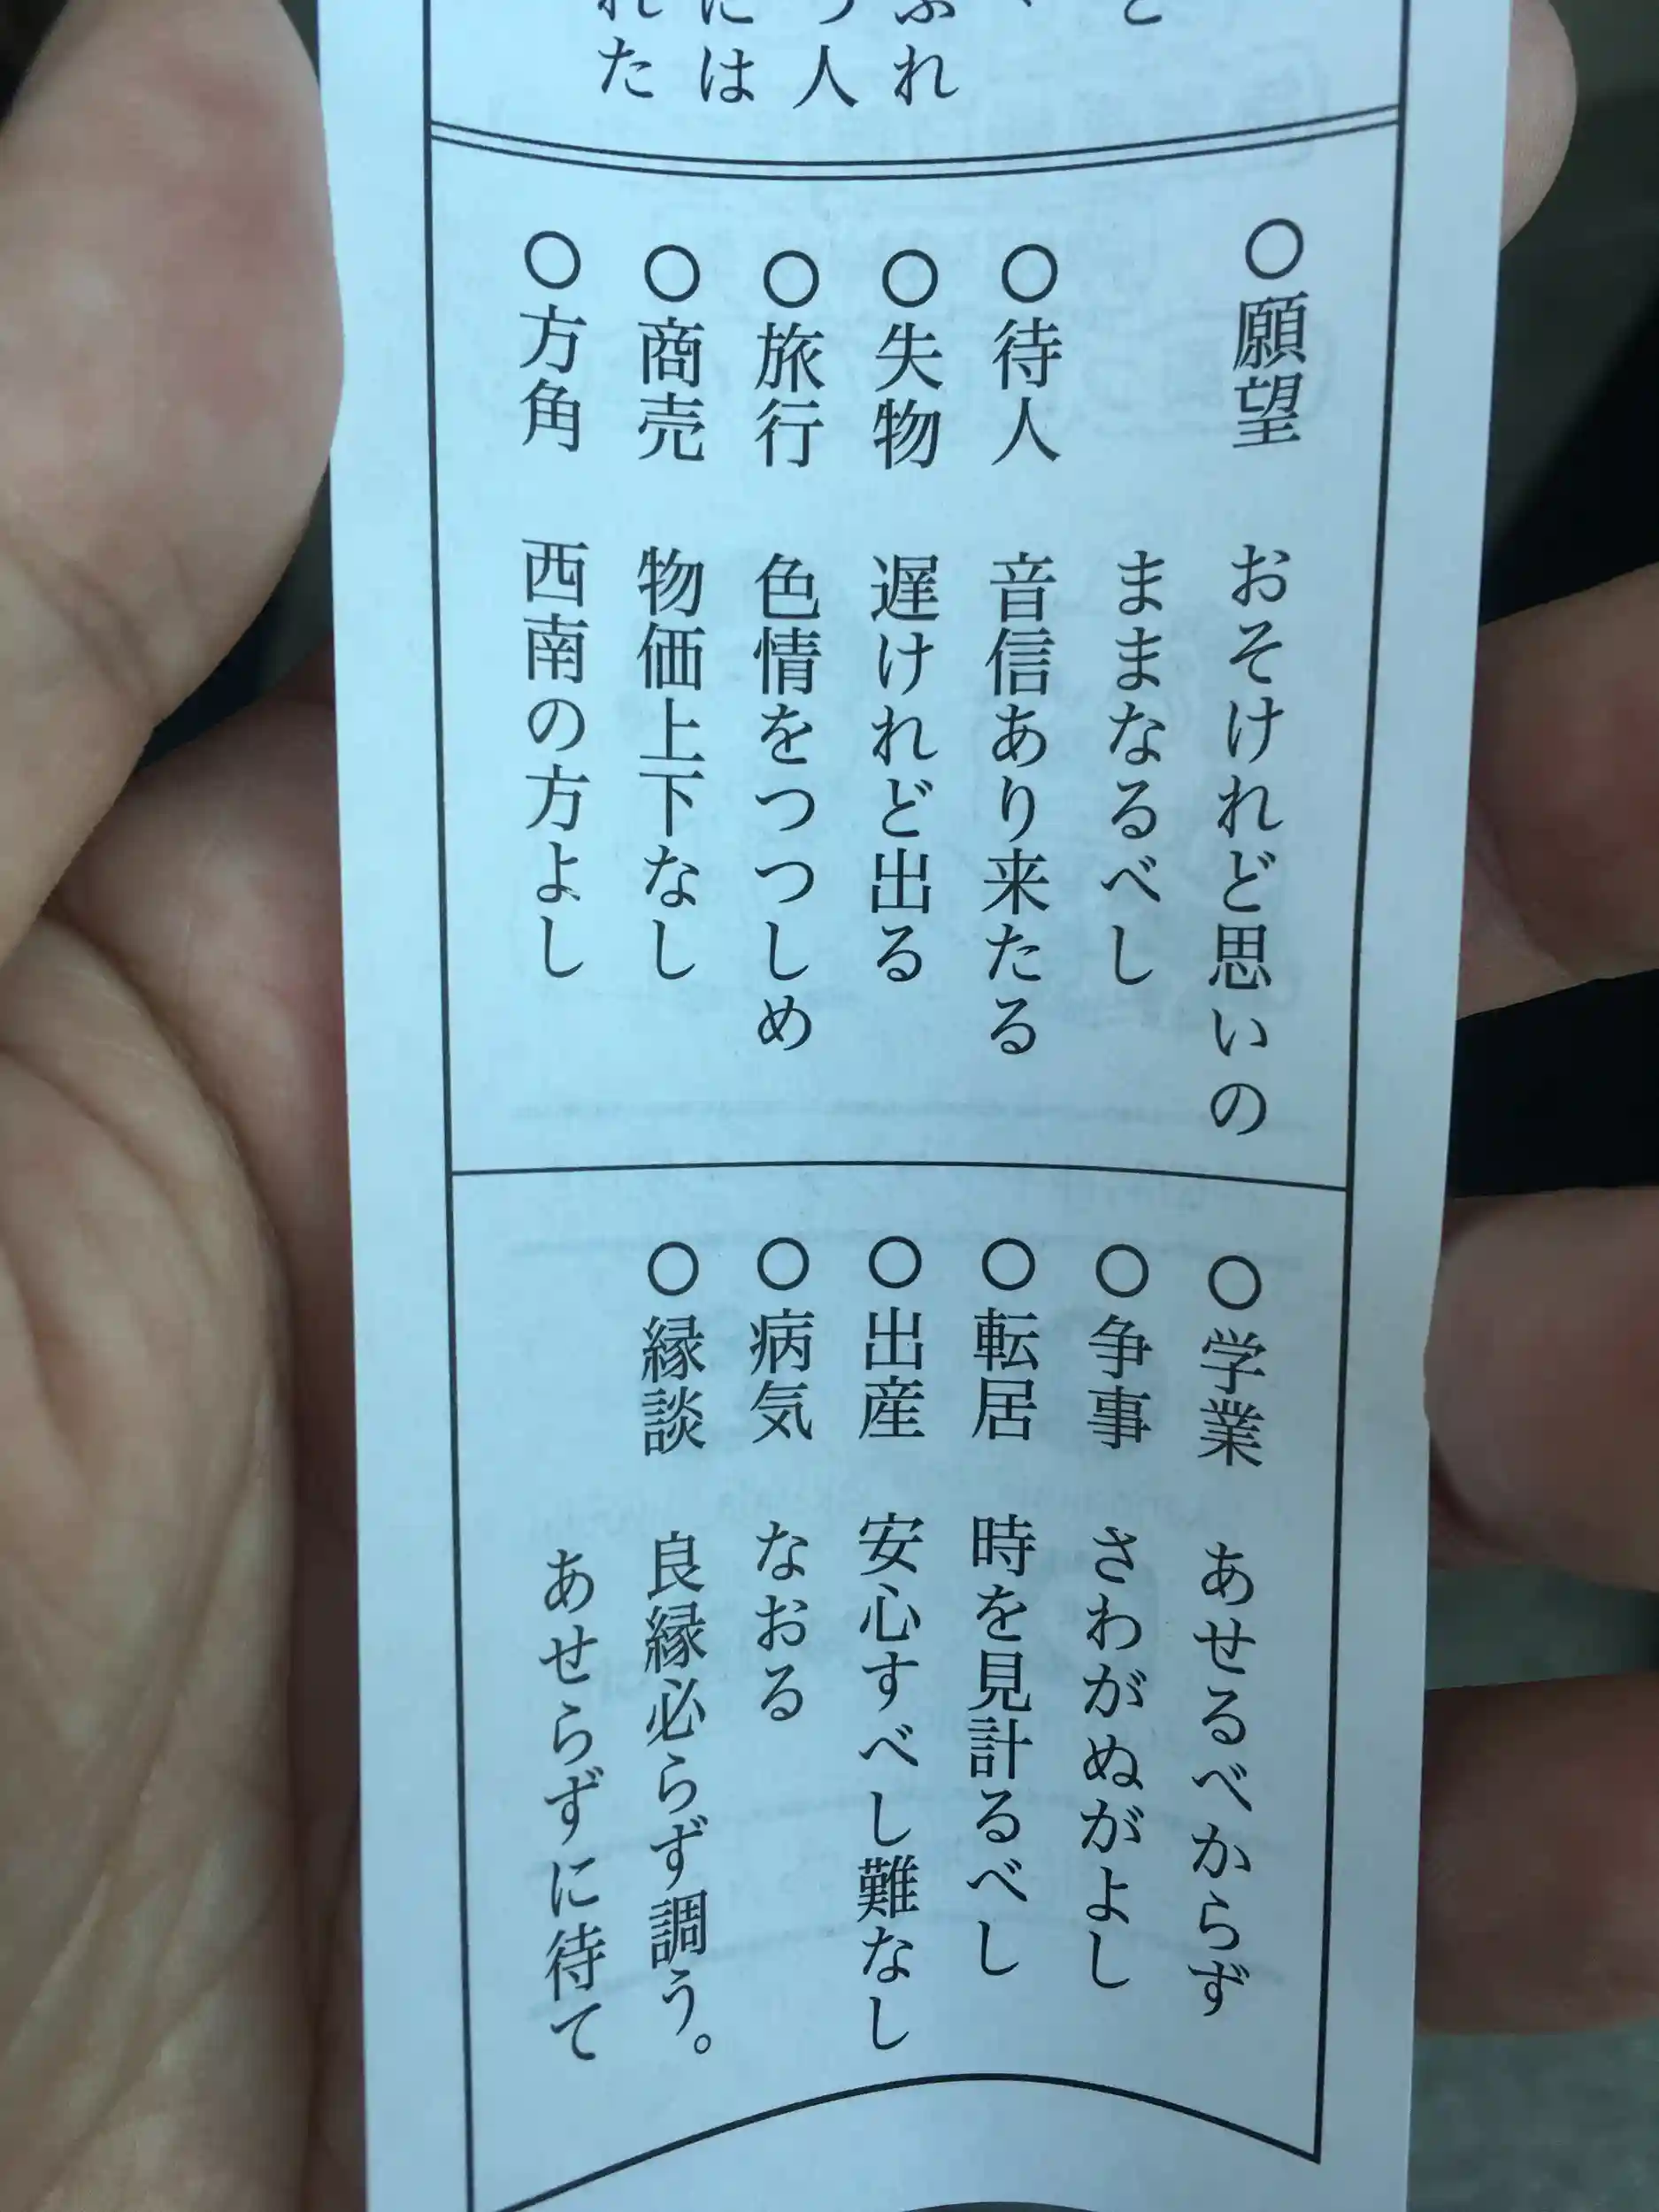 ふれ
つ人
には
れた
○願望 おそけれど思いの
ままなるべし
○待人 音信あり来たる
○失物 遅けれど出る
○旅行 色情をつつしめ
○商売 物価上下なし
○方角 西南の方よし
○学業 あせるべからず
○争事 さわがぬがよし
○転居 時を見計るべし
○出産 安心すべし難なし
○病気 なおる
○縁談 良縁必らず調う。
あせらずに待て